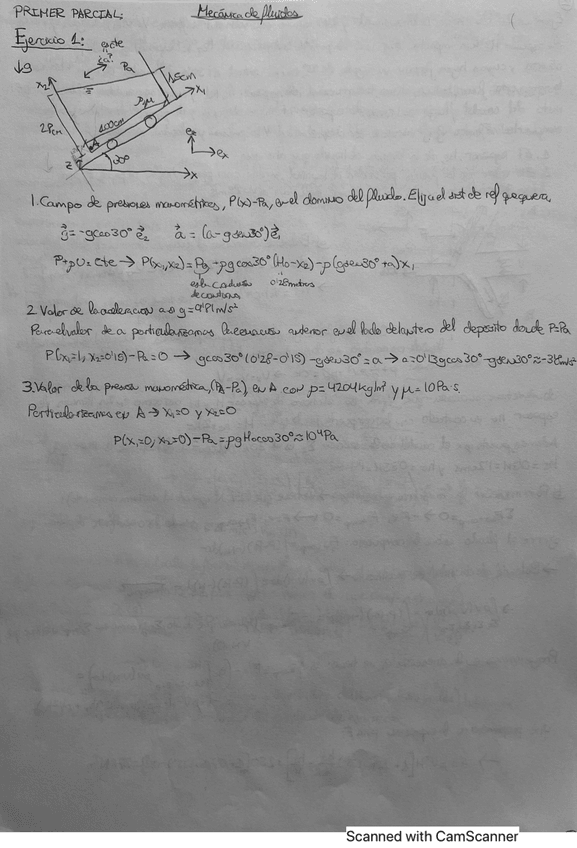 PRIMER PARCIAL:
Mecánica de fluidos
Ejercicio 1:
es cte
¿a?
↓g
Pa
15cm
x2
x1
ρ,μ
28cm
100cm
A
z
30º
x
ez
ex
1. Campo de presiones manométricas, P(x)-Pa, en el dominio del fluido. Elija el sist de ref que quiera.
g⃗ = -gcos30º e⃗2 a⃗ = (a-gsen30º)e⃗1
P+ρU = cte → P(x1,x2) = Pa+ρgcos30º(H0-x2)-ρ(gsen30º+a)x1
0'28 metros
de contorno
2. Valor de la aceleracion a si g=9'81m/s²
Para el valor de a particularizamos la ecuacion anterior en el lado delantero del deposito donde P=Pa
P(x1=1, x2=0'15)-Pa=0 → gcos30º(0'28-0'15)-gsen30º=a → a=0'13gcos30º-gsen30º≈-3'8m/s²
3. Valor de la presion manométrica, (PA-Pa), en A con ρ=4204kg/m³ y μ=10Pa·s.
Particularizamos en A → x1=0 y x2=0
P(x1=0, x2=0)-Pa=ρgH0cos30º≈10⁴Pa
Scanned with CamScanner